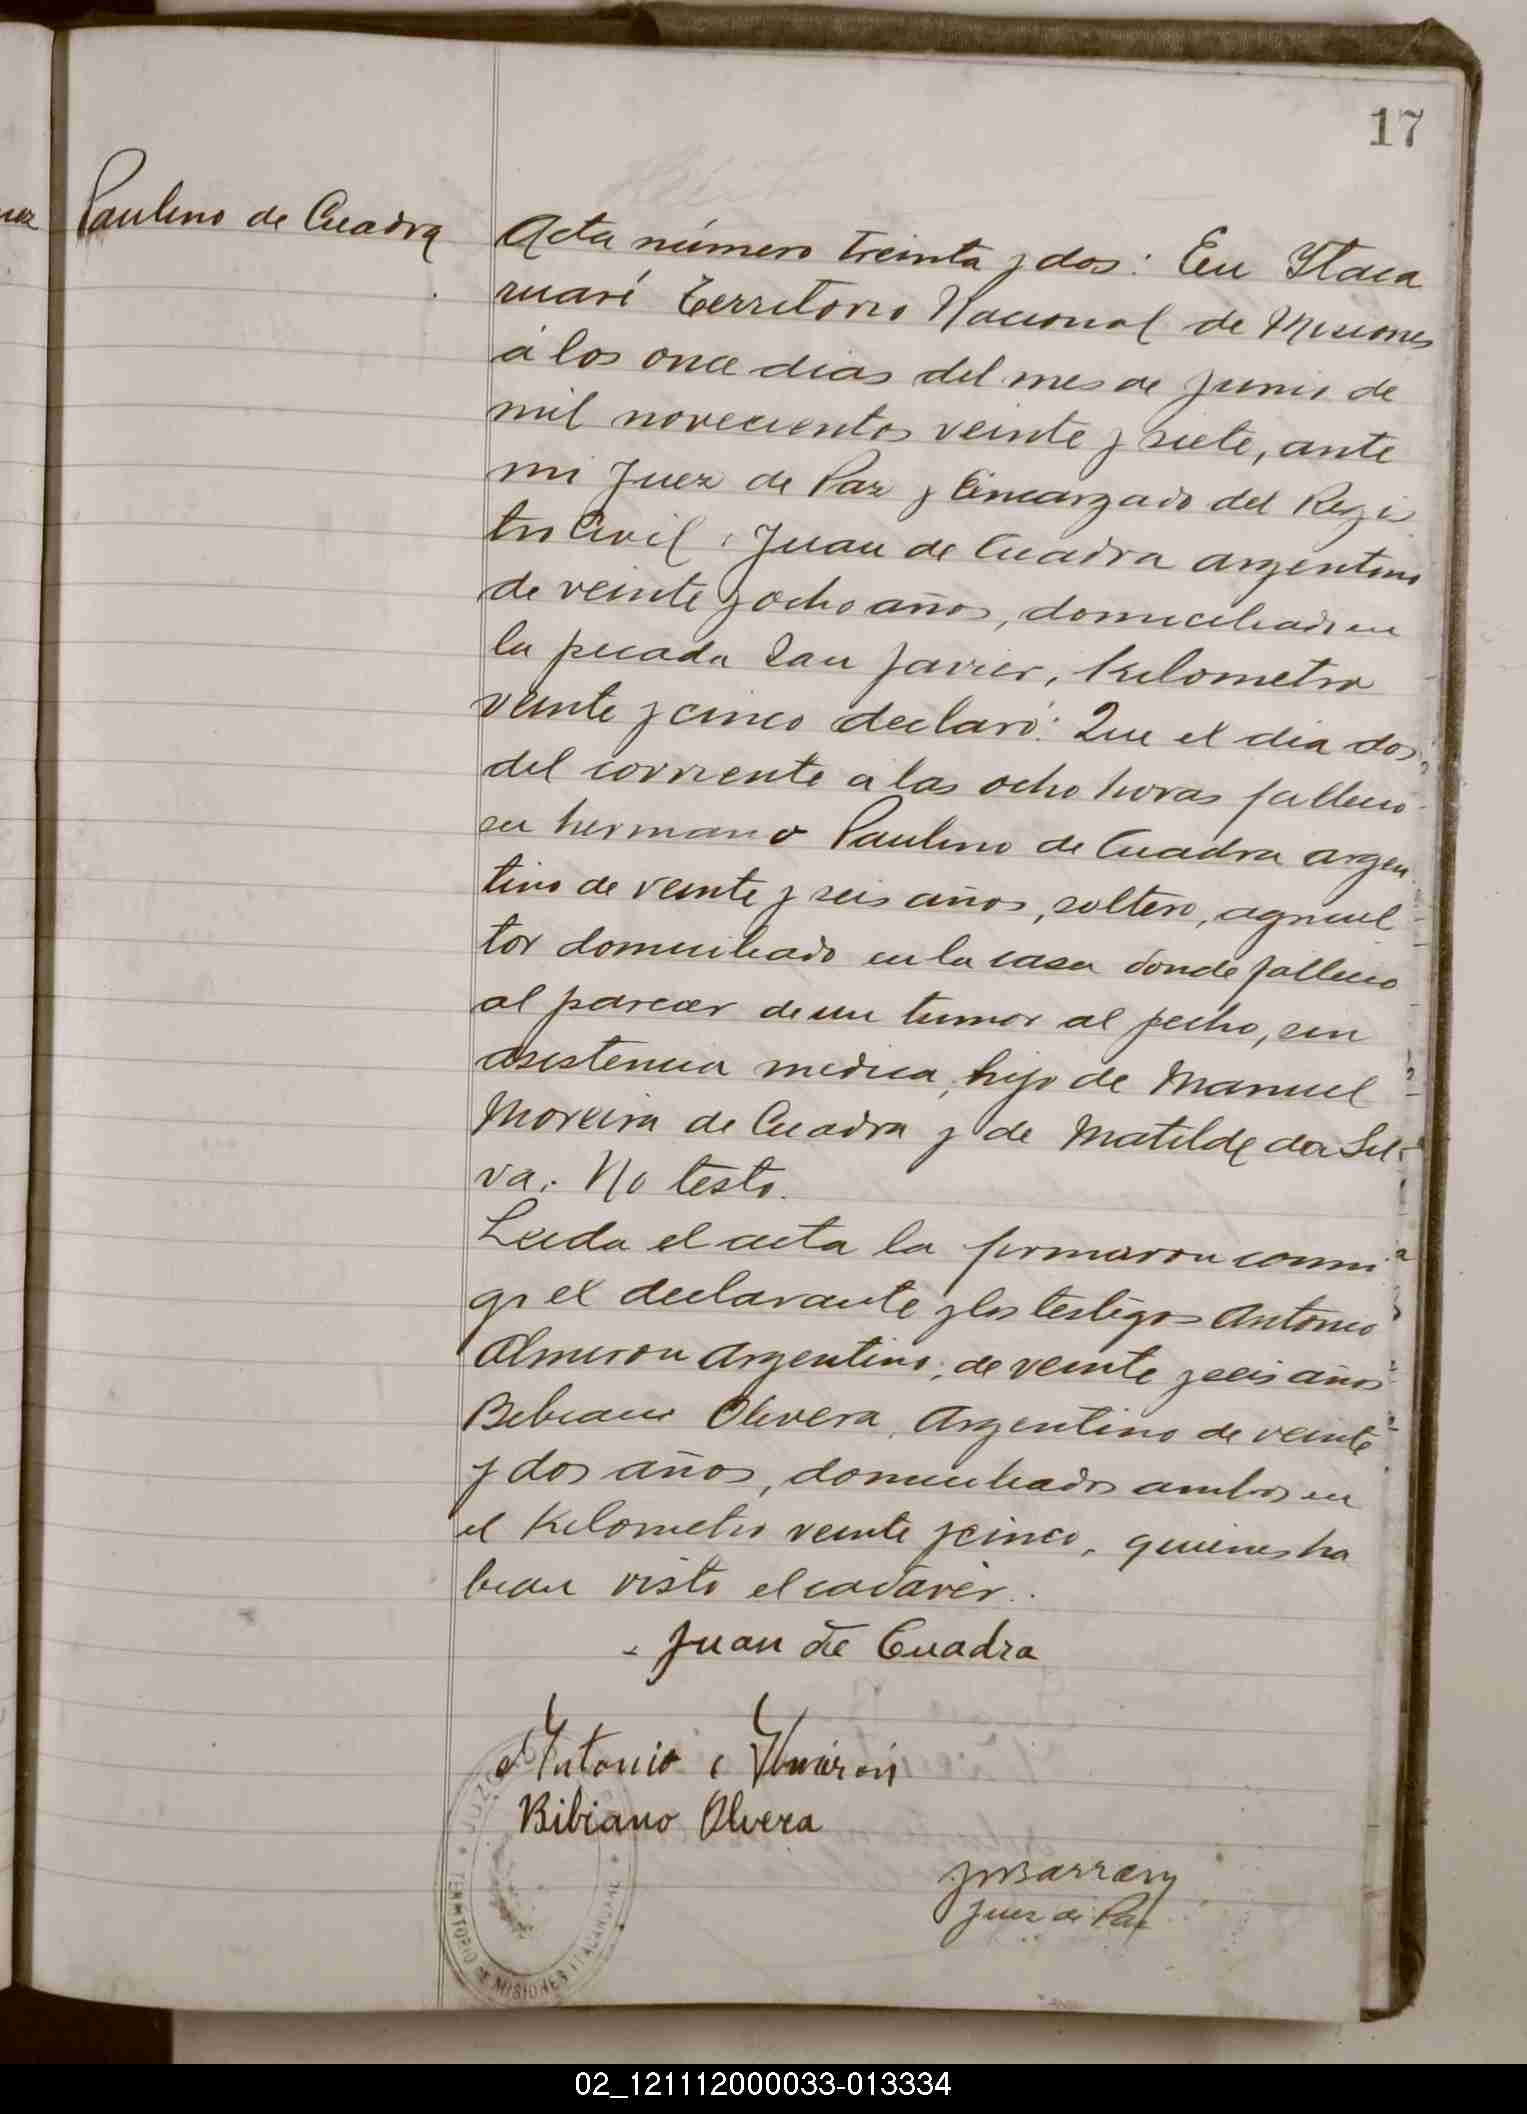 17
Paulino de Cuadra
Acta número treinta y dos: En Itaca
ruaré Territorio Nacional de Misiones
á los once dias del mes de Junio de
mil novecientos veinte y siete, ante
mi Juez de Paz y Encargado del Regis
tro Civil, Juan de Cuadra argentino
de veinte y ocho años, domiciliado en
la picada San Javier, Kilometro
veinte y cinco declaró: Que el dia dos
del corriente a las ocho horas fallecio
su hermano Paulino de Cuadra argen
tino de veinte y seis años, soltero, agricul
tor domiciliado en la casa donde fallecio
al parecer de un tumor al pecho, sin
asistencia medica, hijo de Manuel
Moreira de Cuadra y de Matilde da Sil
va. No testo.
Leida el acta la firmaron conmi
go el declarante y los testigos Antonio
Almiron Argentino, de veinte y seis años
Bibiano Olivera, Argentino de veinte
y dos años, domiciliados ambos en
el Kilometro veinte y cinco, quienes ha
bian visto el cadaver.
Juan de Cuadra
Antonio Almirón
Bibiano Olvera
Juez de Paz
TERRITORIO DE MISIONES ITACARUARE
02_121112000033-013334